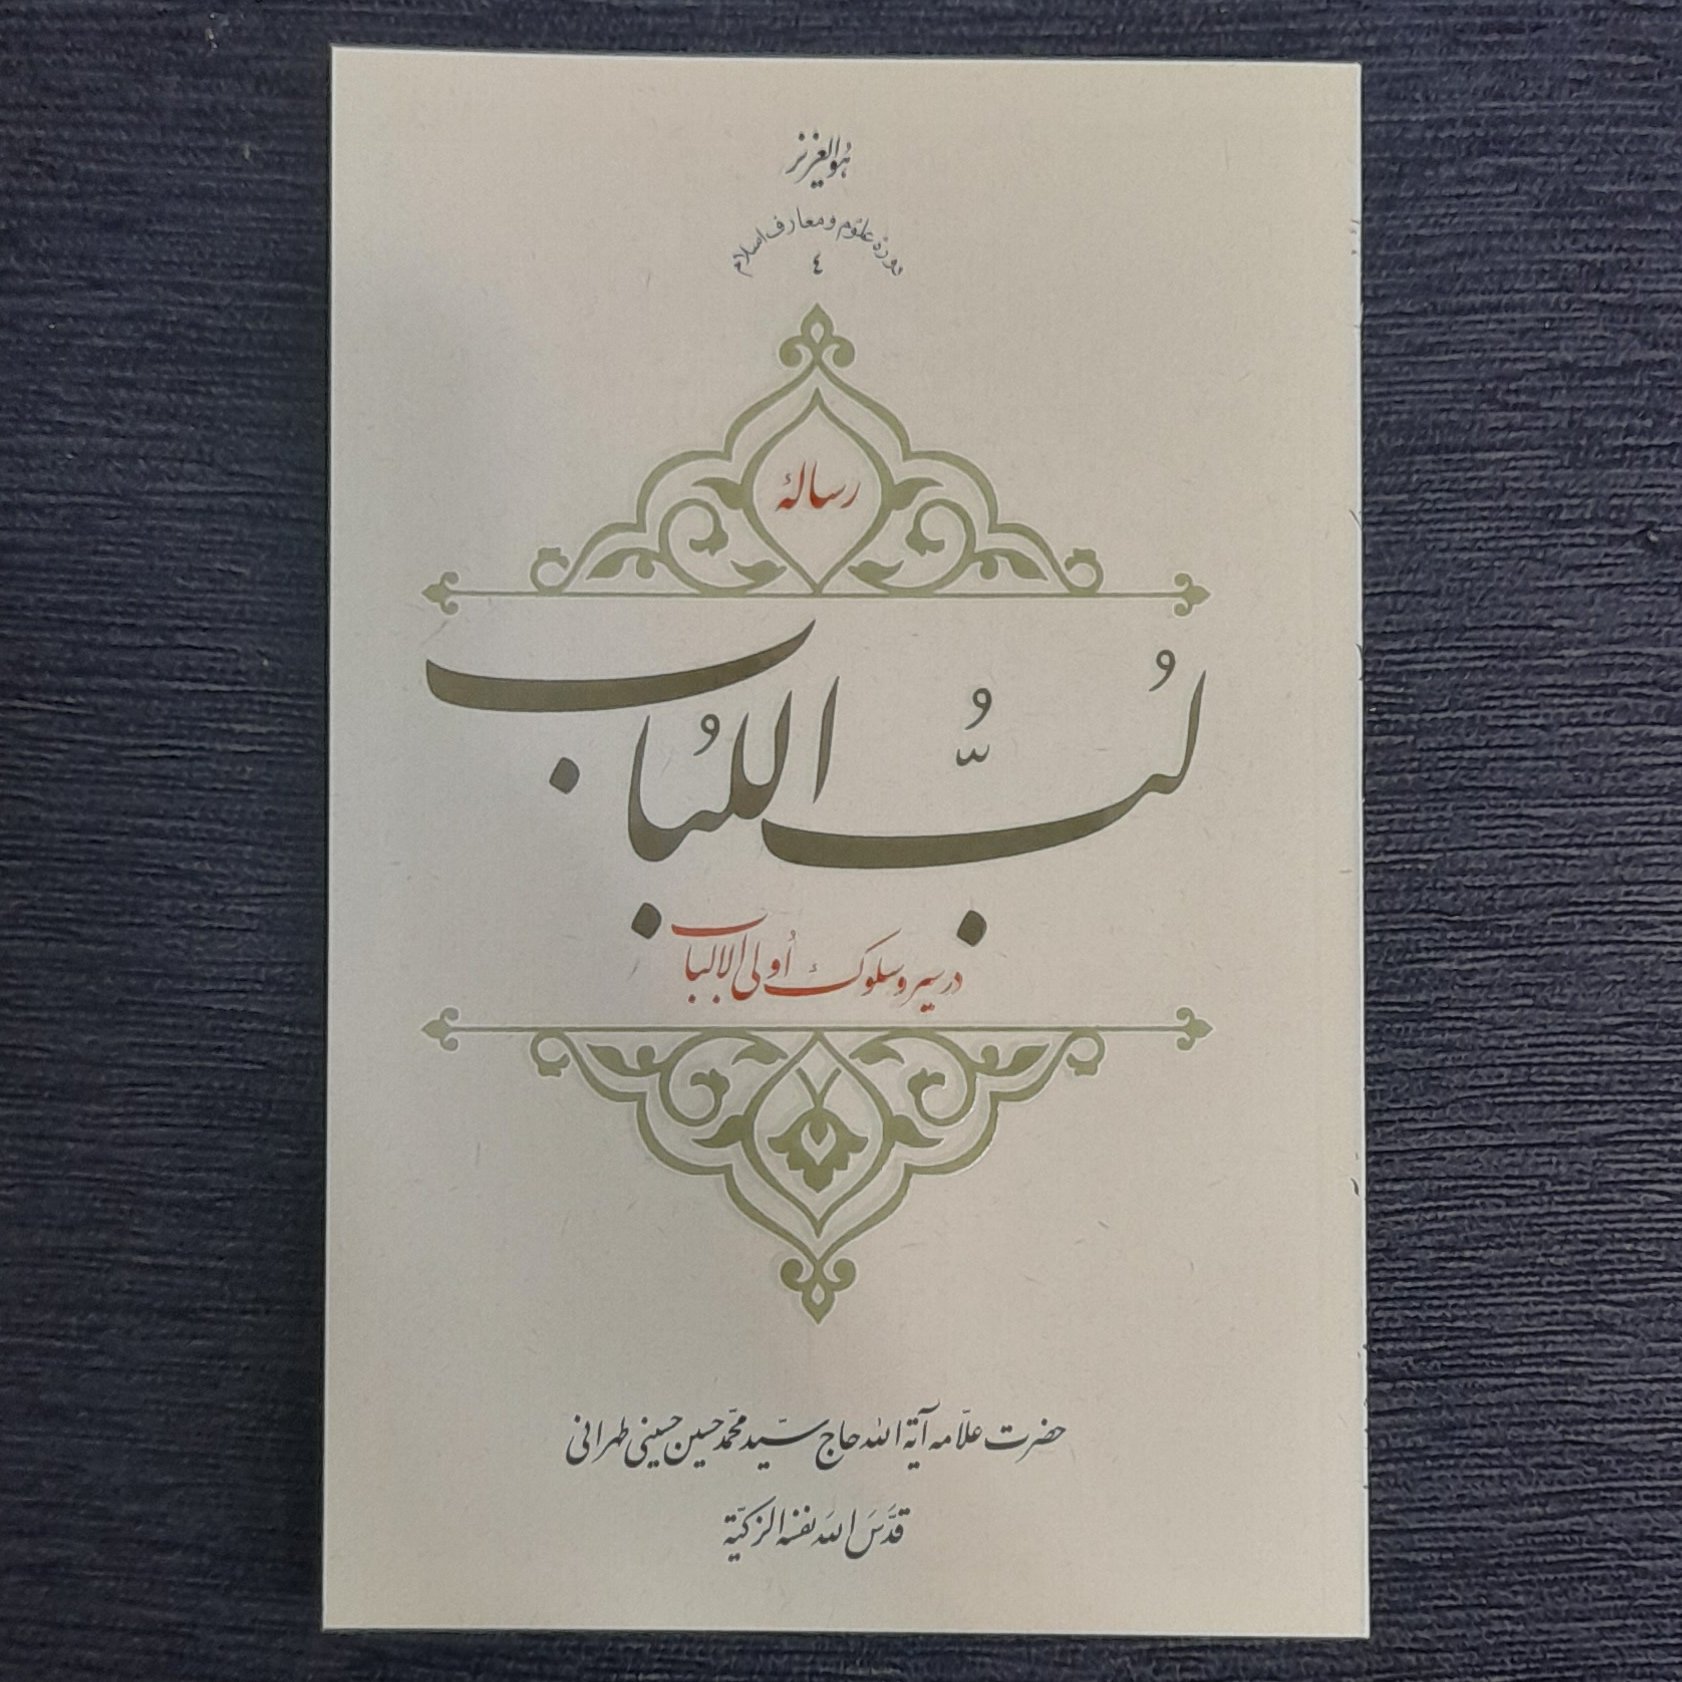 هو العزیز
دورهٔ علوم و معارف اسلام
٤
رسالهٔ
لُبُّ اللُّباب
در سیر و سلوک اُولی الالباب
حضرت علّامه آیة الله حاج سیّد محمّد حسین حسینی طهرانی
قدَّسَ اللهُ نفسَه الزکیّة